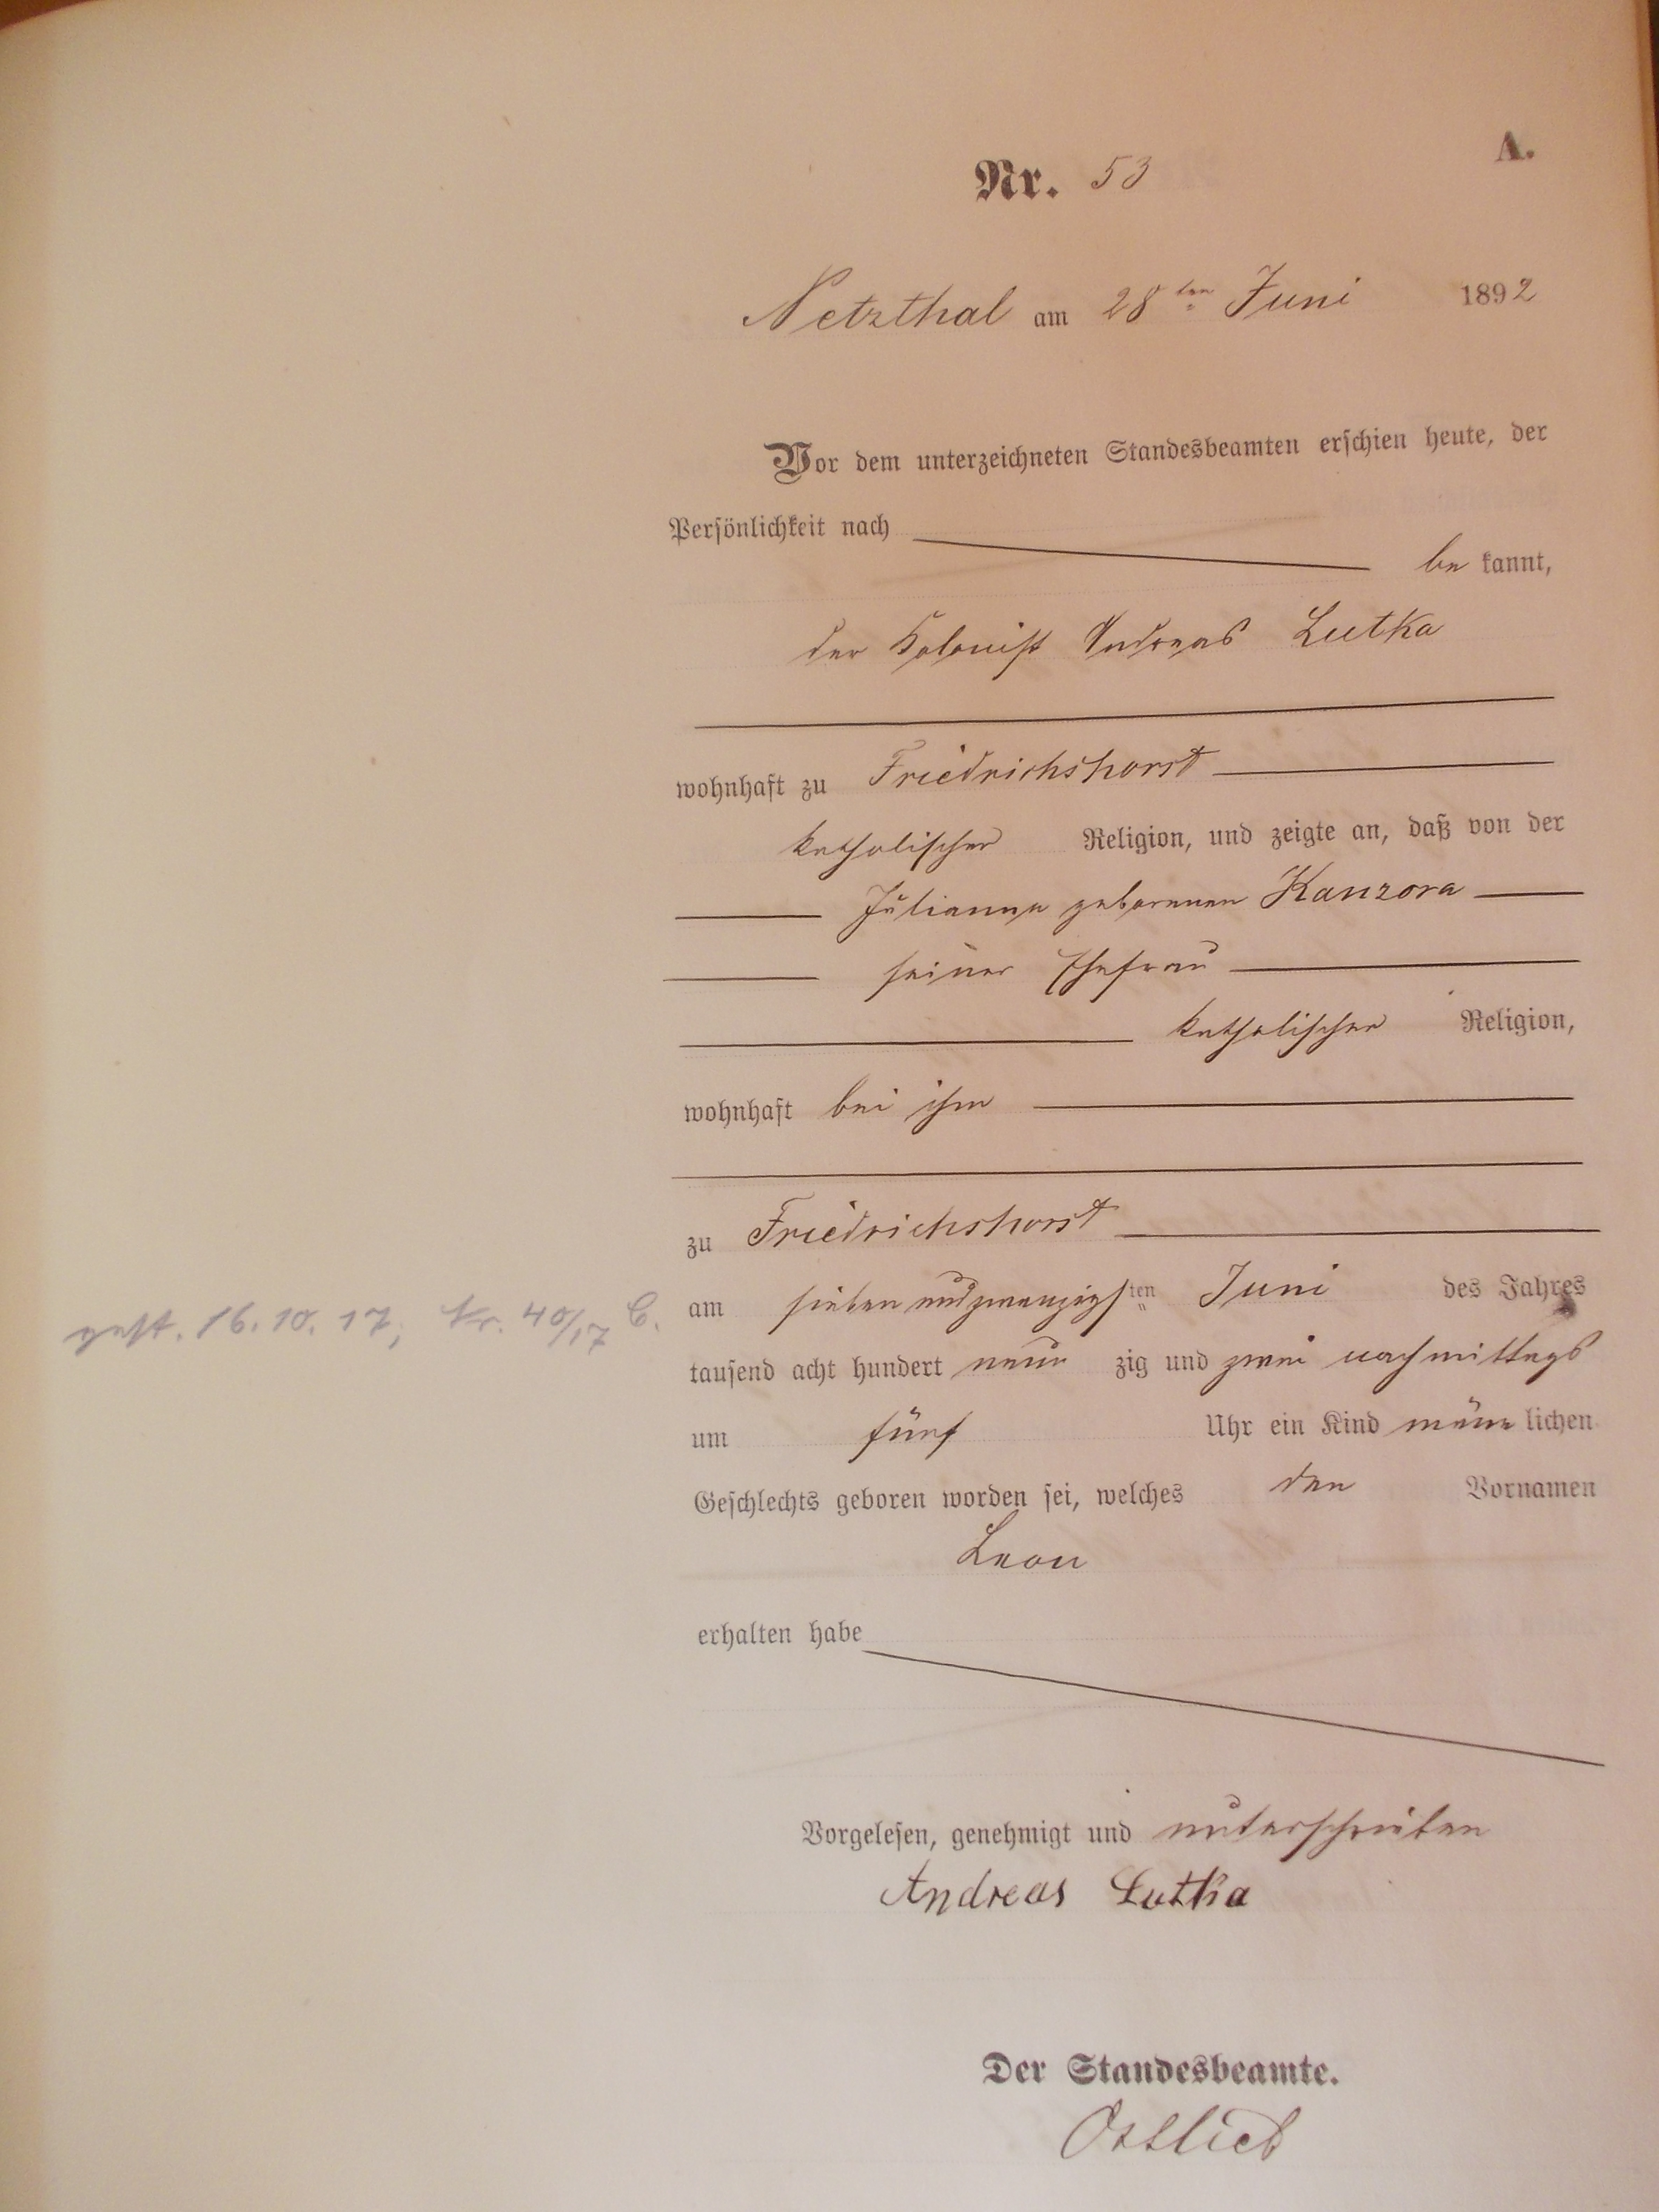 A.
Nr. 53
Netzthal am 28ten Juni 1892
Vor dem unterzeichneten Standesbeamten erschien heute, der
Persönlichkeit nach
be kannt,
der Kolonist Andreas Lutka
wohnhaft zu Friedrichshorst
katholischer Religion, und zeigte an, daß von der
Julianna geborenen Kanzora
seiner Ehefrau
katholischer Religion,
wohnhaft bei ihm
zu Friedrichshorst
am sieben und zwanzigsten Juni des Jahres
gest. 16.10.17, Nr. 40/17 C.
tausend acht hundert neun zig und zwei nachmittags
um fünf Uhr ein Kind männ lichen
Geschlechts geboren worden sei, welches den Vornamen
Leon
erhalten habe
Vorgelesen, genehmigt und unterschrieben
Andreas Lutka
Der Standesbeamte.